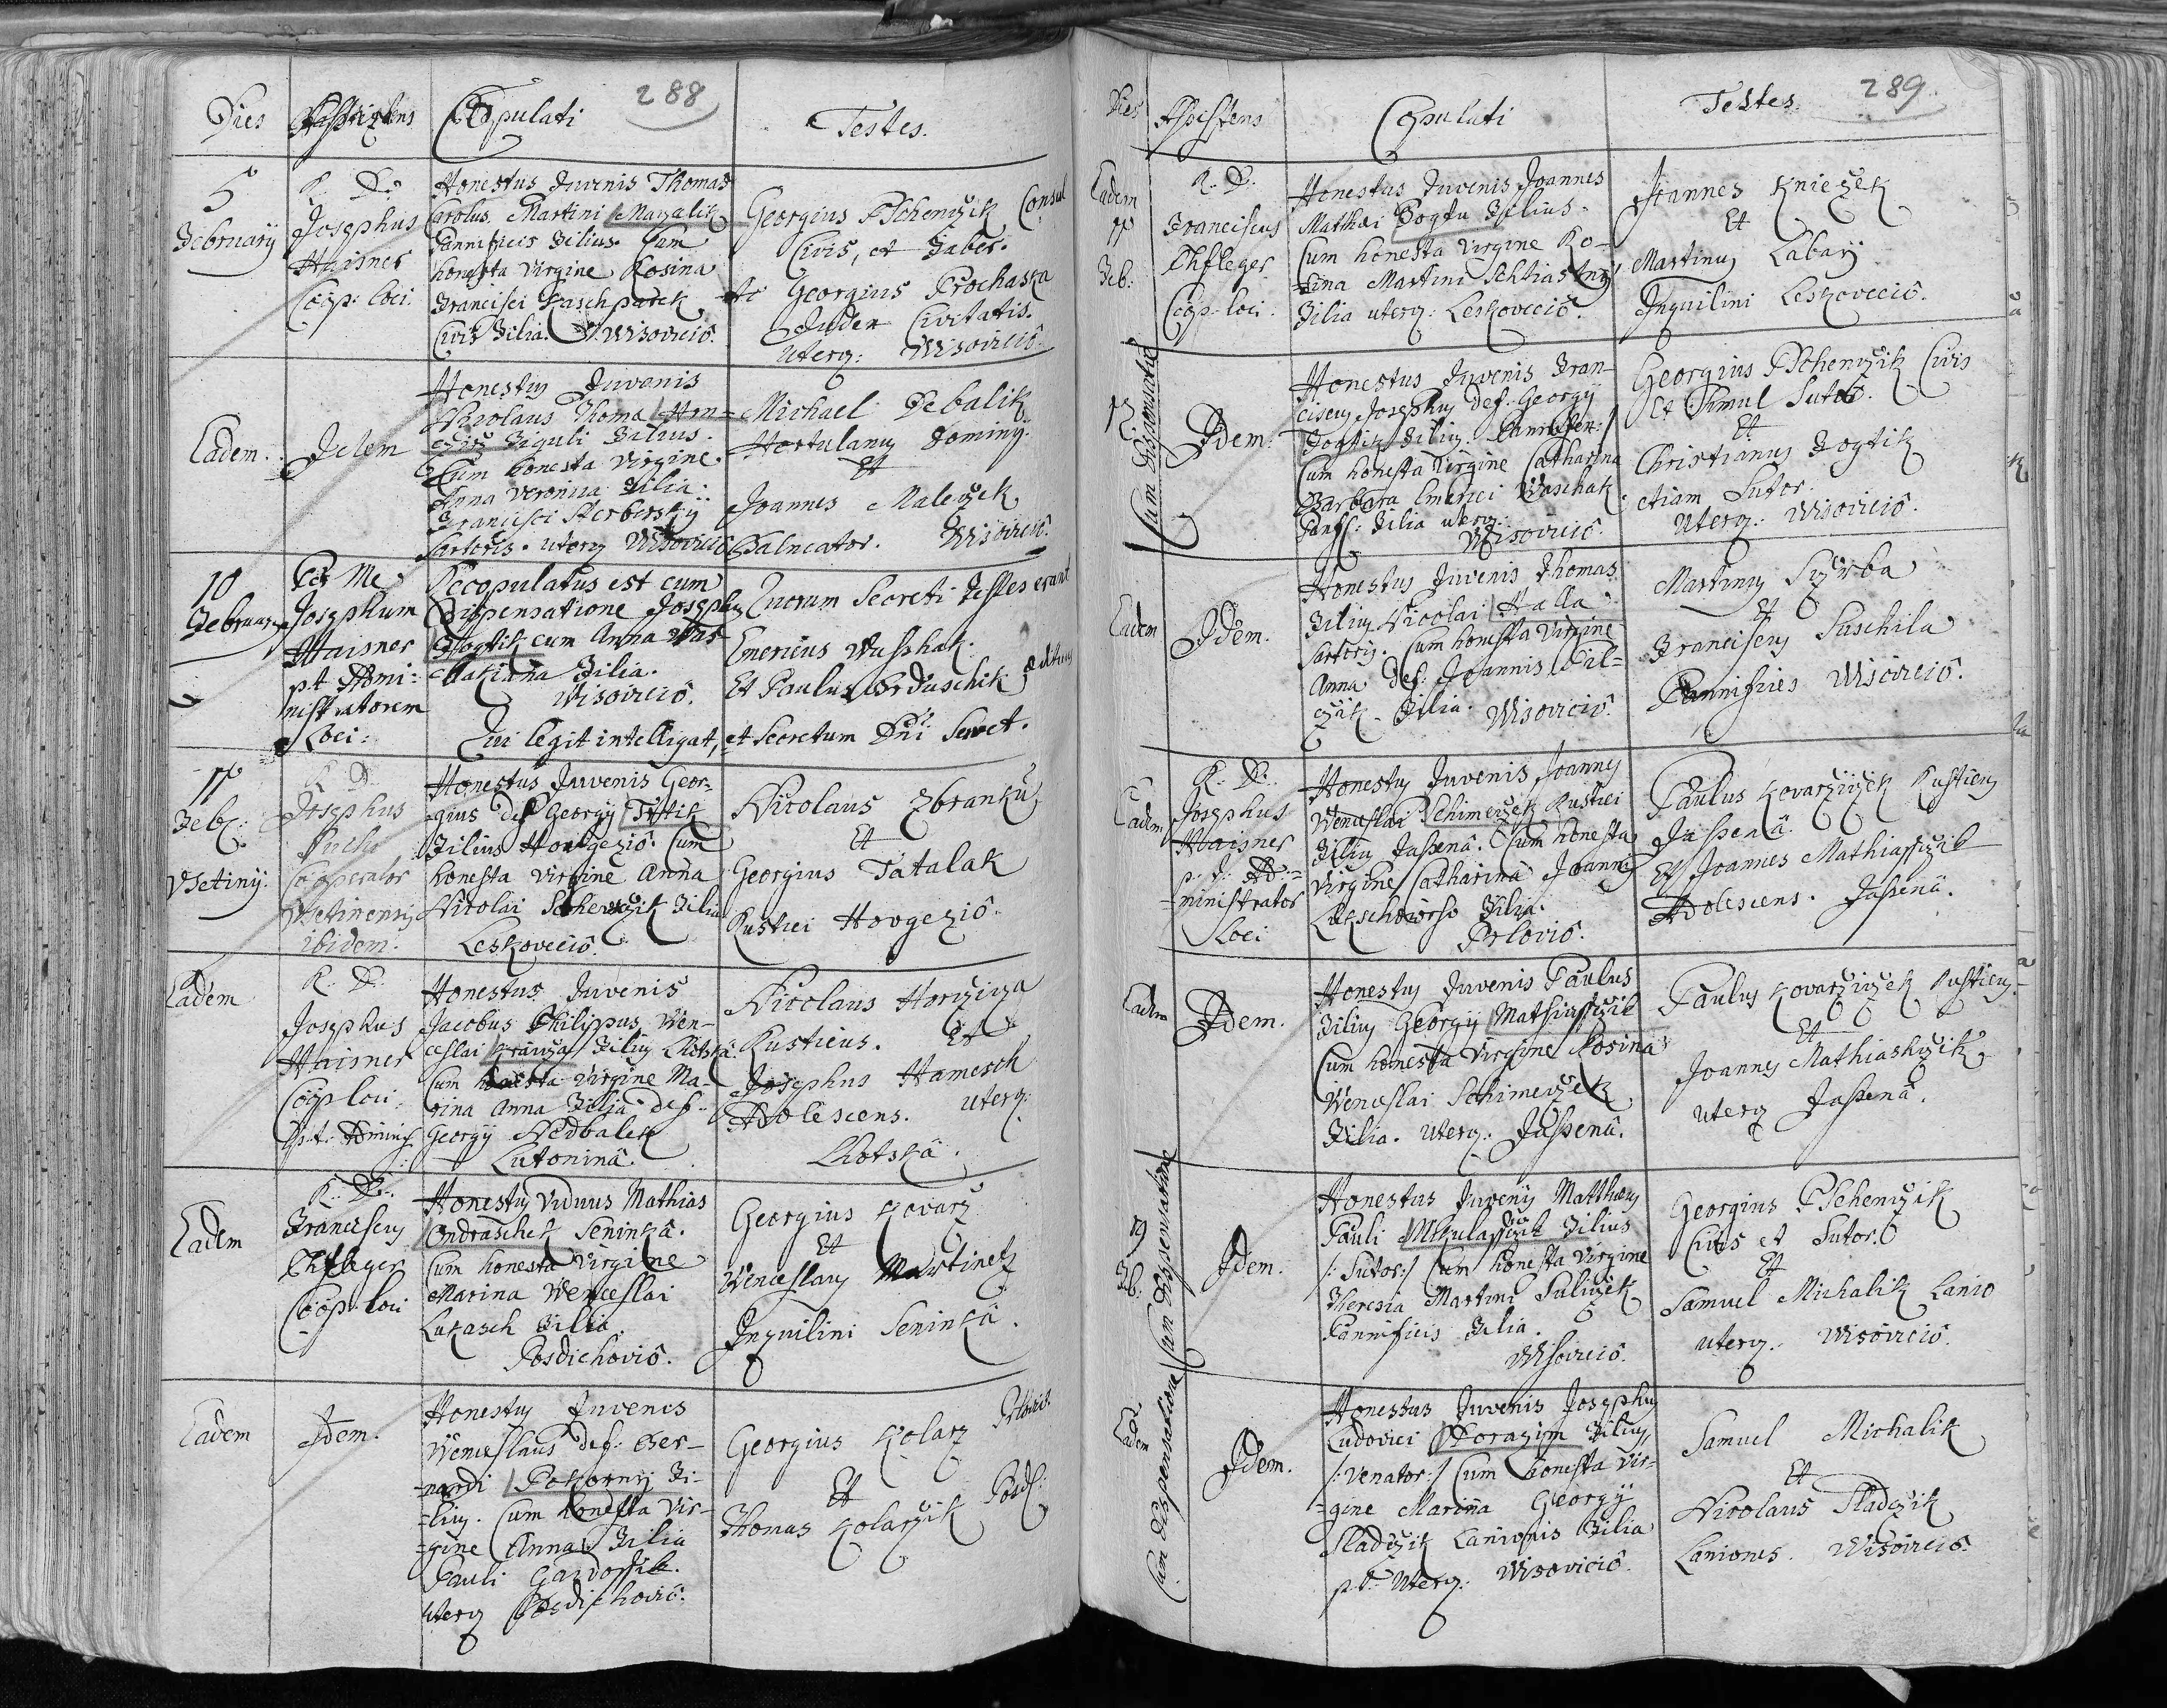 288
Dies Assistens Copulati Testes.
5 Februarij
R. D. Josephus Haisner Coop: loci
Honestus Juvenis Thomas
Carolus Martini Mazalik
Pannificis Filius. Cum
honesta Virgine Rosina
Francisci Kaschparek
Civis Filia. Wisovicio.
Georgius Pschenczik Consul
Civis, et Faber.
Et Georgius Prochaska
Judex Civitatis.
uterq: Wisovicio.
Eadem.
Idem
Honestus Juvenis
Nicolaus Thoma
Figuli Filius.
Cum honesta Virgine
Anna Veronica Filia
Francisci Herbersky
Sartoris. uterq Wisovicio
Michael Debalik
Hortulanus Dominij.
Et
Joannes Maleczek
Balneator. Wisovicio.
10 Februarij
Per Me
Josephum
Haisner
p.t. Admi:
nistratorem
Loci:
Recopulatus est cum
Dispensatione Josephus
Fogtik cum Anna
Filia.
Wisovicio.
Qui legit intelligat, et Secretum Dni Servet.
Quorum Secreti Testes erant
Emericus Waschak.
Et Paulus Orduschik Ædituus
17 Feb:
Vsetiny.
R. D.
Josephus
Cooperator
Vsetinensis
ibidem.
Honestus Juvenis Geor-
gius def Georgij Trstik
Filius Hovgezio. Cum
honesta Virgine Anna
Nicolai Filia
Leskovecio.
Nicolaus Zbranku
Et
Georgius Tatalak
Rustici Hovgezio.
Eadem
R. D.
Josephus
Haisner
Coop loci.
p.t. Adminis
Honestus Juvenis
Jacobus Philippus Wen-
ceslai Krauza Filius Lhotska.
Cum honesta Virgine Ma-
rina Anna Filia def:
Georgij Nedbalek
Lutonina.
Nicolaus Horziza
Rusticus. Et
Josephus Hamesch
Adolescens. uterq:
Lhotska.
Eadem
R. D.
Franciscus
Pfleger
Coop: loci
Honestus Viduus Mathias
Ondraschek Seninka.
Cum honesta Virgine
Marina Wenceslai
Lukasch Filia.
Posdiechovio.
Georgius Kovarz
Et
Wenceslaus Martinek
Inquilini Seninka.
Eadem
Idem.
Honestus Juvenis
Wenceslaus def: Ber-
nardi Pokorny Fi-
lius. Cum honesta Vir-
gine Anna Filia
Pauli Gardossik.
uterq Posdiechovio.
Georgius Kolarz Prlovio.
Et
Thomas Kolarzik Posd:
289
Dies Assistens Copulati Testes.
Eadem
17
Feb:
R. D.
Franciscus
Pfleger
Coop loci.
Honestus Juvenis Joannes
Mathæi Fogtu Filius.
Cum honesta Virgine Ro-
sina Martini Schtiastny
Filia uterq: Leskovecio.
Joannes Knieżek
Et
Martinus Labay
Inquilini Leskovecio.
17
Cum Dispensatione
Idem.
Honestus Juvenis Fran-
ciscus Josephus def: Georgij
Fogtik Filius.
Cum honesta Virgine Catharina
Barbara Emerici Waschak
Panif: Filia uterq:
Wisovicio.
Georgius Pschenczik Civis
Et Simul Sutor.
Et
Christianus Fogtik
etiam Sutor.
Uterq: Wisovicio.
Eadem
Idem.
Honestus Juvenis Thomas
Filius Nicolai Halla
Sartoris. Cum honesta Virgine
Anna def: Joannis Pil-
czik Filia. Wisovicio.
Martinus Sczirba
Et
Franciscus Suschila
Pannifices Wisovicio.
Eadem
R. D.
Josephus
Haisner
p. t. Ad-
ministrator
Loci
Honestus Juvenis Joannes
Wenceslai Schimeczek Rustici
Filius Jassena. Cum honesta
Virgine Catharina Joannis
Filia.
Prlovio.
Paulus Kovarziczek Rusticus
Jassena
Et Joannes Mathiassczik
Adolescens. Jassena.
Eadem
Idem.
Honestus Juvenis Paulus
Filius Georgij Mathiassczik
Cum honesta Virgine Rosina
Wenceslai Schimeczek
Filia. uterq: Jassena.
Paulus Kovarziczek Rusticus
Et
Joannes Mathiasczik
uterq Jassena.
19
Feb:
Cum Dispensatione
Idem.
Honestus Juvenis Matthæus
Pauli Mikulassczik Filius
/: Sutor:/ Cum honesta Virgine
Theresia Martini Suliczek
Pannificis Filia.
Wisovicio.
Georgius Pschenczik
Civis et Sutor.
Et
Samuel Michalik Lanio
uterq: Wisovicio.
Eadem
Cum dispensatione
Idem.
Honestus Juvenis Josephus
Ludovici Filius
/: Venator:/ Cum honesta Vir-
gine Marina Georgij
Sladczik Lanionis Filia
p.t. Uterq: Wisovicio.
Samuel Michalik
Et
Nicolaus Sladczik
Laniones. Wisovicio.